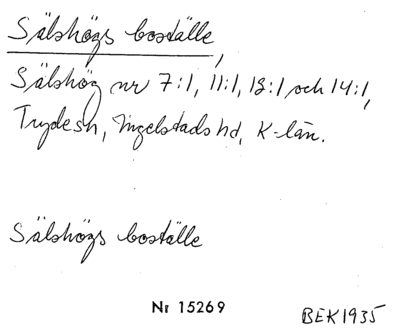 Sälshögs boställe,
Sälshög nr 7:1, 11:1, 13:1 och 14:1,
Tryde sn, Ingelstads hd, K-län.
Sälshögs boställe
Nr 15269
BEK 1935